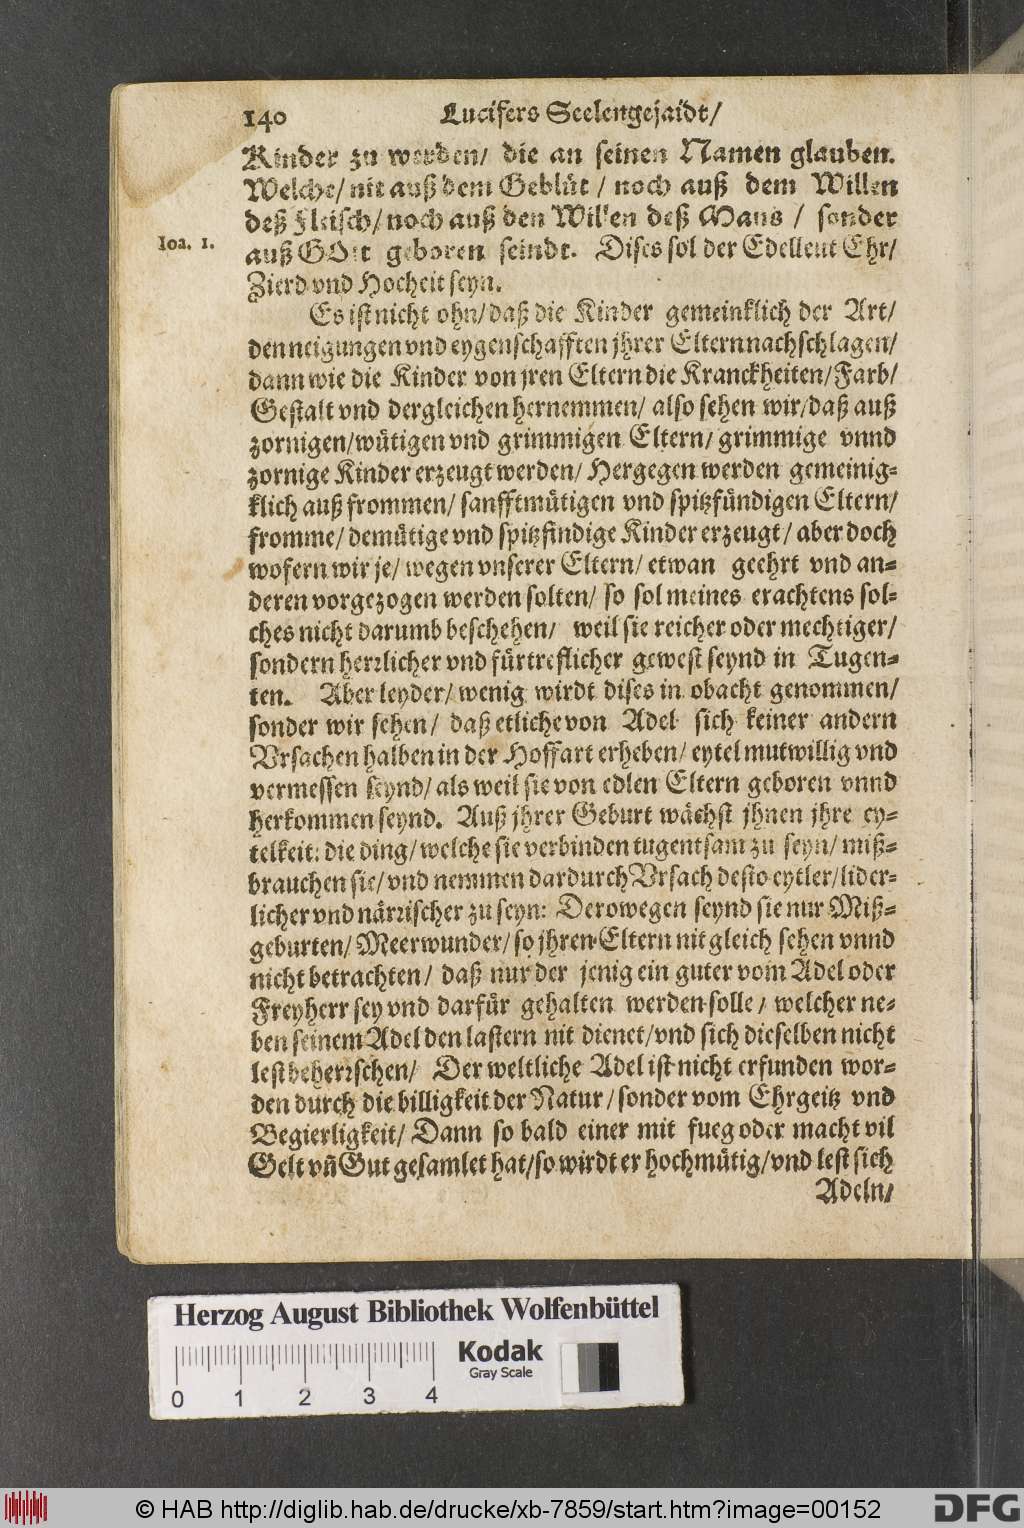 140 Lucifers Seelengejaidt/
Kinder zu werden/ die an seinen Namen glauben.
Welche/ nit auß dem Geblüt / noch auß dem Willen
deß Fleisch/ noch auß den Willen deß Mans / sonder
Ioa. 1.
auß GOtt geboren seindt. Dises sol der Edelleut Ehr/
Zierd vnd Hocheit seyn.
Es ist nicht ohn/ daß die Kinder gemeinklich der Art/
den neigungen vnd eygenschafften jhrer Eltern nachschlagen/
dann wie die Kinder von jren Eltern die Kranckheiten/ Farb/
Gestalt vnd dergleichen hernemmen/ also sehen wir/ daß auß
zornigen/ wütigen vnd grimmigen Eltern/ grimmige vnnd
zornige Kinder erzeugt werden/ Hergegen werden gemeinig-
klich auß frommen/ sanfftmütigen vnd spitzfündigen Eltern/
fromme/ demütige vnd spitzfindige Kinder erzeugt/ aber doch
wofern wir je/ wegen vnserer Eltern/ etwan geehrt vnd an-
deren vorgezogen werden solten/ so sol meines erachtens sol-
ches nicht darumb beschehen/ weil sie reicher oder mechtiger/
sondern herrlicher vnd fürtreflicher gewest seynd in Tugen-
ten. Aber leyder/ wenig wirdt dises in obacht genommen/
sonder wir sehen/ daß etliche von Adel sich keiner andern
Vrsachen halben in der Hoffart erheben/ eytel mutwillig vnd
vermessen seynd/ als weil sie von edlen Eltern geboren vnnd
herkommen seynd. Auß jhrer Geburt wächst jhnen jhre ey-
telkeit: die ding/ welche sie verbinden tugentsam zu seyn/ miß-
brauchen sie/ vnd nemmen dardurch Vrsach desto eytler/ lider-
licher vnd närrischer zu seyn: Derowegen seynd sie nur Miß-
geburten/ Meerwunder/ so jhren Eltern nit gleich sehen vnnd
nicht betrachten/ daß nur der jenig ein guter vom Adel oder
Freyherr sey vnd darfür gehalten werden solle / welcher ne-
ben seinem Adel den lastern nit dienet/ vnd sich dieselben nicht
lest beherrschen/ Der weltliche Adel ist nicht erfunden wor-
den durch die billigkeit der Natur / sonder vom Ehrgeitz vnd
Begierligkeit/ Dann so bald einer mit fueg oder macht vil
Gelt vñ Gut gesamlet hat/ so wirdt er hochmütig/ vnd lest sich
Adeln/
Herzog August Bibliothek Wolfenbüttel
Kodak
Gray Scale
0 1 2 3 4
© HAB http://diglib.hab.de/drucke/xb-7859/start.htm?image=00152
DFG